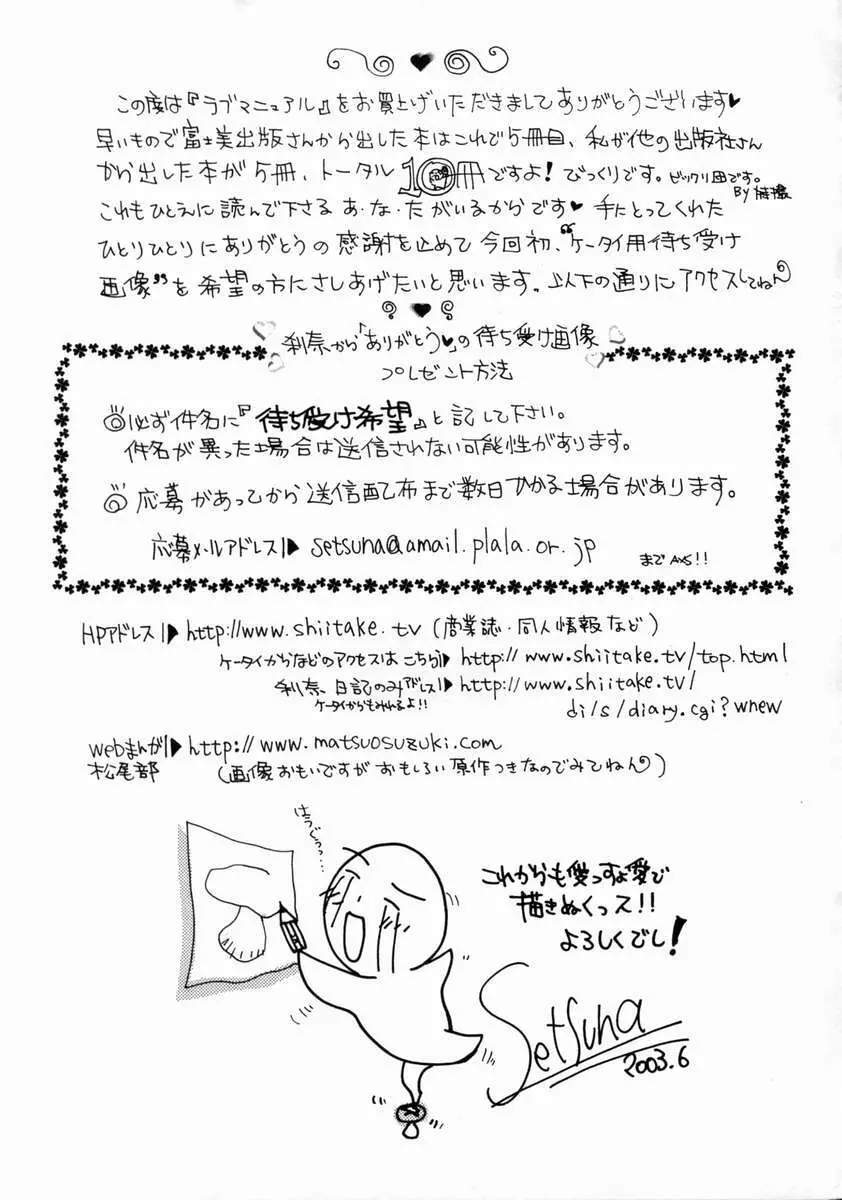 この度は『ラブマニュアル』をお買上げいただきましてありがとうございます♥
早いもので富士美出版さんから出した本はこれで5冊目、私が他の出版社さん
から出した本が5冊、トータル10冊ですよ!びっくりです。ビックリ団です。
By
これもひとえに読んで下さるあ・な・たがいるからです♥手にとってくれた
ひとりひとりにありがとうの感謝を止めて今回初、“ケータイ用待ち受け
画像”を希望の方にさしあげたいと思います。以下の通りにアクセスしてねん
刹奈から「ありがとう♥」の待ち受け画像
プレゼント方法
◎必ず件名に『待ち受け希望』と記して下さい。
件名が異った場合は送信されない可能性があります。
◎応募があってから送信配布まで数日かかる場合があります。
応募メールアドレス setsuna@amail.plala.or.jp
まで AXS!!
HPアドレス http://www.shiitake.tv (商業誌・同人情報など)
ケータイからなどのアクセスはこちら http://www.shiitake.tv/top.html
刹奈、日記のみアドレス http://www.shiitake.tv/
ケータイからもみれるよ!! di/s/diary.cgi?wnew
webまんが http://www.matsuosuzuki.com
松尾部 (画像おもいですがおもしろい原作つきなのでみてねん)
これからも愛っすよ愛で
描きぬくっス!!
よろしくでし!
Setsuna
2003.6